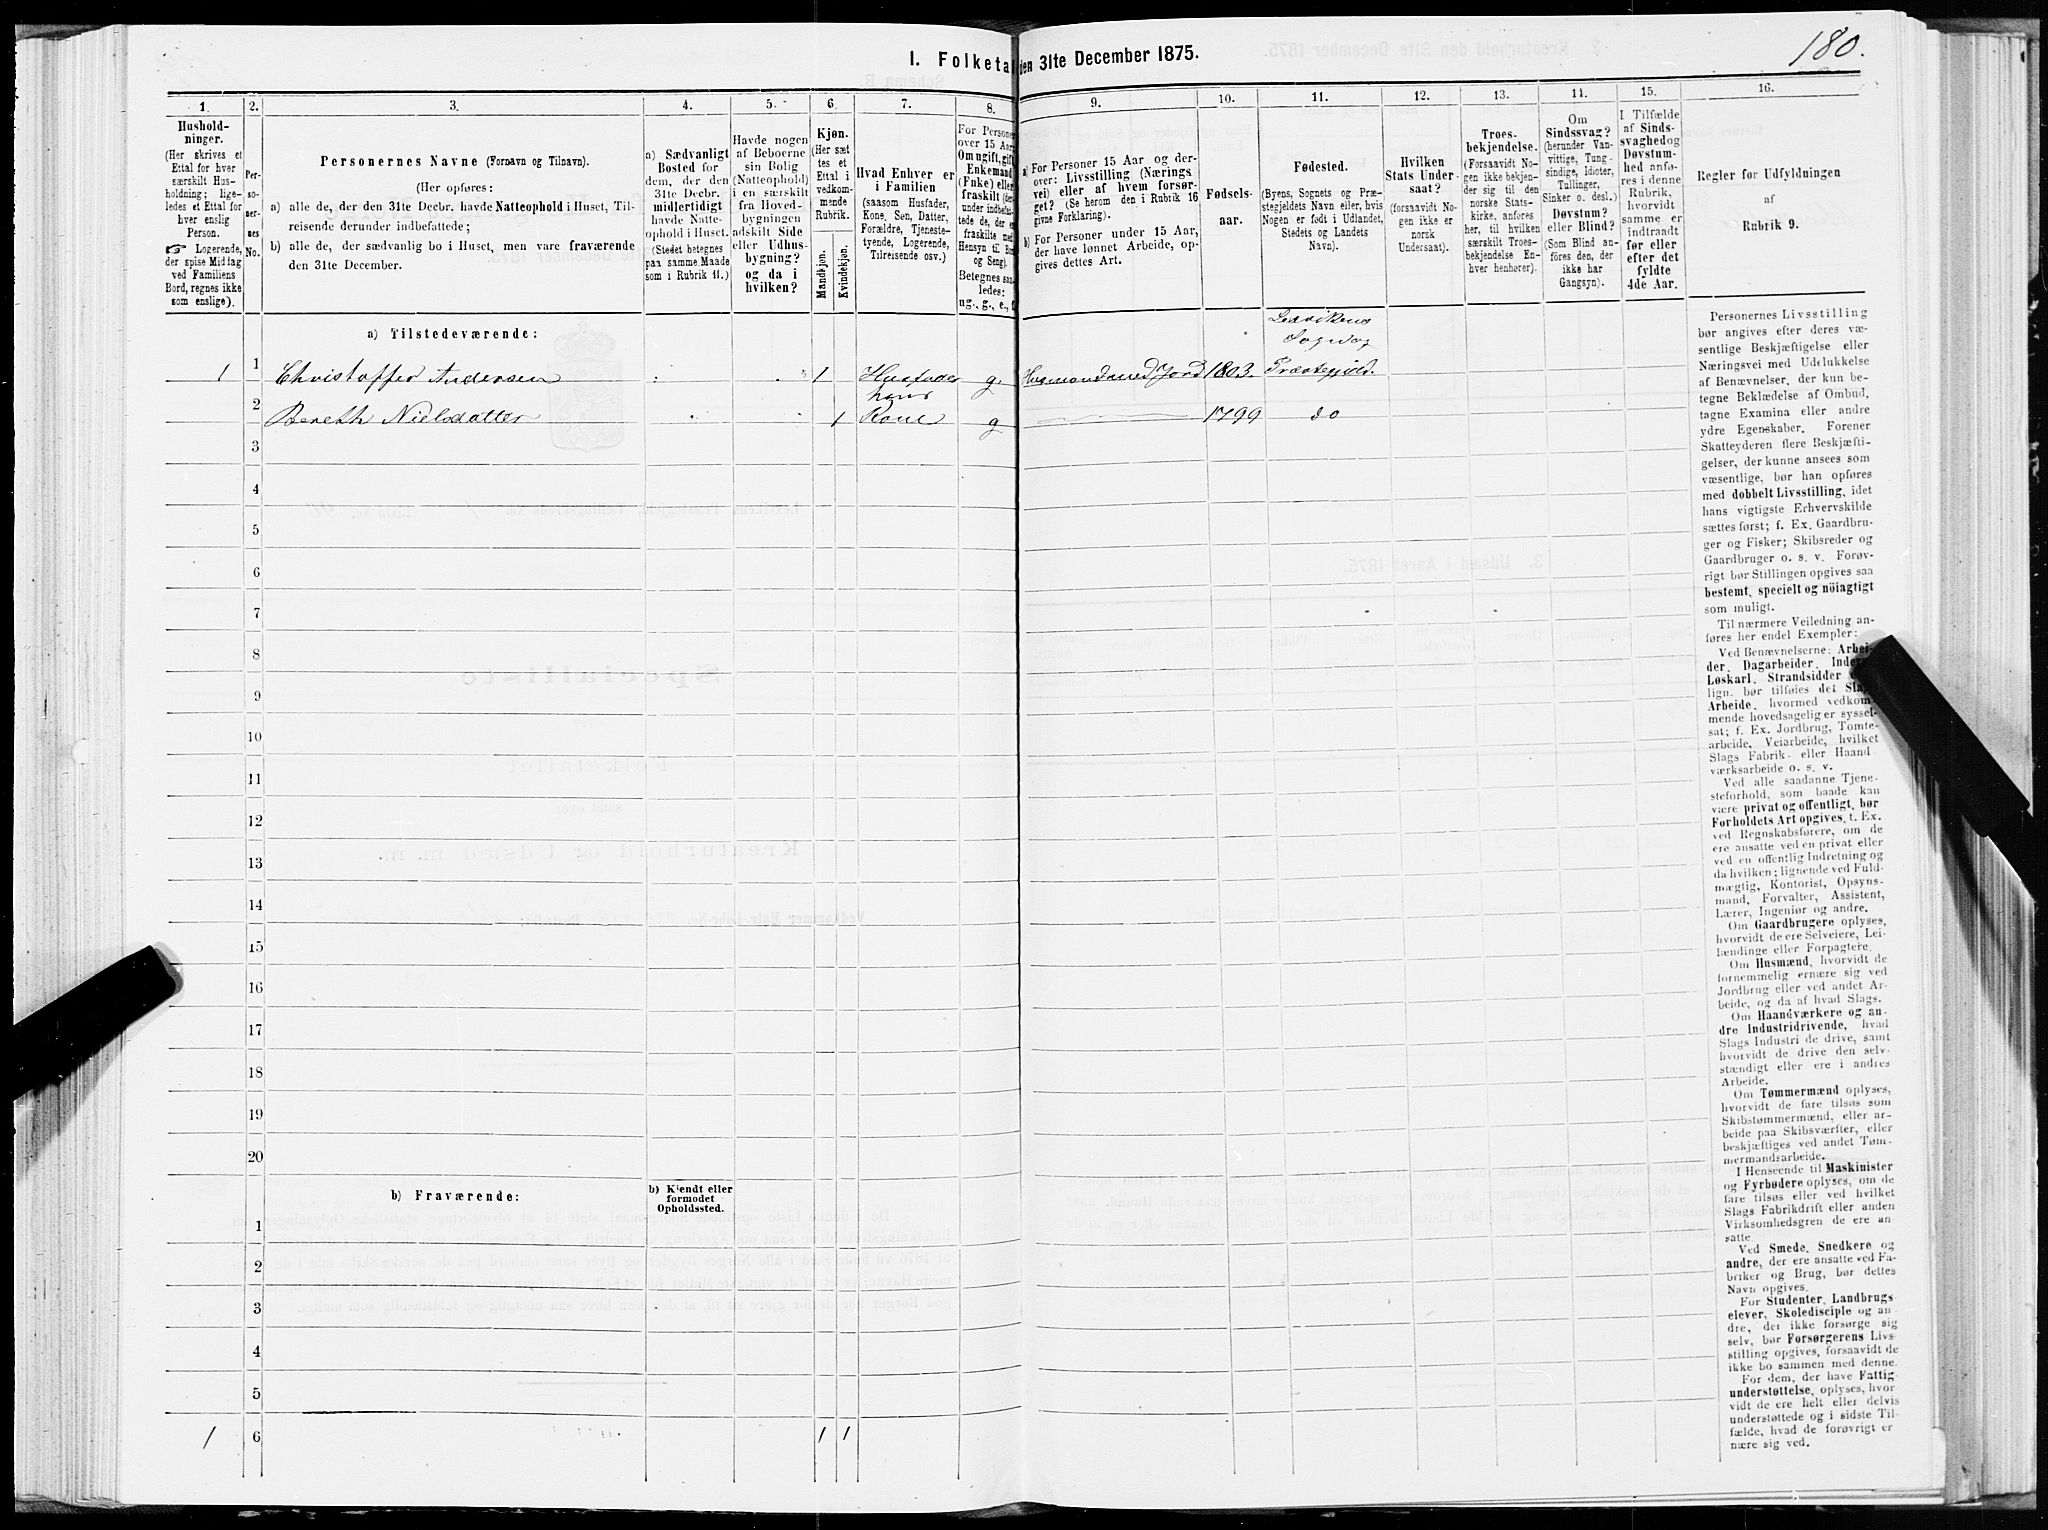 I. Folketal den 31te December 1875.
180.
1.
2.
3.
4.
5.
6.
7.
8.
9.
10.
11.
12.
13.
14.
15.
16.
Hushold-
ninger.
(Her skrives et
Ettal for hver
særskilt Hus-
holdning; lige-
ledes et Ettal for
hver enslig
Person.
Logerende,
der spise Middag
ved Familiens
Bord, regnes ikke
som enslige).
Per-
so-
ner-
nes
No.
Personernes Navne (Fornavn og Tilnavn).
(Her opføres:
a) alle de, der den 31te Decbr. havde Natteophold i Huset, Til-
reisende derunder indbefattede;
b) alle de, der sædvanlig bo i Huset, men vare fraværende
den 31te December.
a) Sædvanligt
Bosted for
dem, der den
31te Decbr.
midlertidigt
havde Natte-
ophold i Huset.
(Stedet betegnes
paa samme Maade
som i Rubrik 11.)
Havde nogen
af Beboerne
sin Bolig
(Natteophold)
i en særskilt
fra Hoved-
bygningen
adskilt Side
eller Udhus-
bygning?
og da i
hvilken?
Kjøn.
(Her sæt-
tes et
Ettal i
vedkom-
mende
Rubrik.
Mandkjøn.
Kvindekjøn.
Hvad Enhver er
i Familien
(saasom Husfader,
Kone, Søn, Datter,
Forældre, Tjeneste-
tyende, Logerende,
Tilreisende osv.)
For Personer
over 15 Aar:
Om ugift, gift,
Enkemand
(Enke) eller
fraskilt (der-
under indbefat-
tede de, der er
fraskilte med
Hensyn til Bord
og Seng).
Betegnes saa-
ledes:
ug., g., e., f.
a) For Personer 15 Aar og der-
over: Livsstilling (Nærings-
vei) eller af hvem forsør-
get? (Se herom den i Rubrik 16
givne Forklaring).
b) For Personer under 15 Aar,
der have lønnet Arbeide, op-
gives dettes Art.
Fødsels-
aar.
Fødested.
(Byens, Sognets og Præ-
stegjeldets Navn eller, hvis
Nogen er født i Udlandet,
Stedets og Landets
Navn).
Hvilken
Stats Under-
saat?
(forsaavidt No-
gen ikke er
norsk
Undersaat).
Troes-
bekjendelse.
(Forsaavidt No-
gen ikke bekjen-
der sig til den
norske Stats-
kirke, anføres
her, til hvilken
særskilt Troes-
bekjendelse En-
hver henhører).
Om
Sindssvag?
(herunder Van-
vittige, Tung-
sindige, Idioter,
Tullinger,
Sinker o. desl.)
Døvstum?
eller Blind?
(Som Blind an-
føres den, der
ikke har
Gangsyn).
I Tilfælde
af Sinds-
svaghed og
Døvstum-
hed anfø-
res i denne
Rubrik,
hvorvidt
samme er
indtraadt
før eller
efter det
fyldte
4de Aar.
Regler for Udfyldningen
af
Rubrik 9.
a) Tilstedeværende:
Ledvikens
Sogn og
1 1 Christoffer Andersen 1 Husfader g. Husmand med Jord 1803. Præstegjeld.
hans
2 Bereth Nielsdatter 1 Kone g 1799 do
3
4
5
6
7
8
9
10
11
12
13
14
15
16
17
18
19
20
b) Fraværende:
b) Kjendt eller
formodet
Opholdssted.
1
2
3
4
5
1 6 1 1
Personernes Livsstilling
bør angives efter deres væ-
sentlige Beskjæftigelse eller
Næringsvei med Udelukkelse
af Benævnelser, der kun be-
tegne Beklædelse af Ombud,
tagne Examina eller andre
ydre Egenskaber. Forener
Skatteyderen flere Beskjæfti-
gelser, der kunne ansees som
væsentlige, bør han opføres
med dobbelt Livsstilling, idet
hans vigtigste Erhvervskilde
sættes først; f. Ex. Gaardbru-
ger og Fisker; Skibsreder og
Gaardbruger o. s. v. Forøv-
rigt bør Stillingen opgives saa
bestemt, specielt og nöiagtigt
som muligt.
Til nærmere Veiledning an-
føres her endel Exempler:
Ved Benævnelserne: Arbei-
der, Dagarbeider, Inder-
Løskarl, Strandsidder
lign. bør tilføies det Slags
Arbeide, hvormed vedkom-
mende hovedsagelig er syssel-
sat; f. Ex. Jordbrug, Tomte-
arbeide, Veiarbeide, hvilket
Slags Fabrik- eller Haand-
værksarbeide o. s. v.
Ved alle saadanne Tjene-
steforhold, som baade kan
være privat og offentligt, bør
Forholdets Art opgives, t. Ex.
ved Regnskabsførere, om de
ere ansatte ved en privat eller
ved en offentlig Indretning og
da hvilken; lignende ved Fuld-
mægtig, Kontorist, Opsyns-
mand, Forvalter, Assistent,
Lærer, Ingeniør og andre.
Om Gaardbrugere oplyses,
hvorvidt de ere Selveiere, Lei-
lændinge eller Forpagtere.
Om Husmænd, hvorvidt de
fornemmelig ernære sig ved
Jordbrug eller ved andet Ar-
beide, og da af hvad Slags.
Om Haandværkere og an-
dre Industridrivende, hvad
Slags Industri de drive, samt
hvorvidt de drive den selv-
stændigt eller ere i andres
Arbeide.
Om Tømmermænd oplyses,
hvorvidt de fare tilsøs som
Skibstømmermænd, eller ar-
beide paa Skibsværfter, eller
beskjæftiges ved andet Tøm-
mermandsarbeide.
I Henseende til Maskinister
og Fyrbødere oplyses, om de
fare tilsøs eller ved hvilket
Slags Fabrikdrift eller anden
Virksomhedsgren de ere an-
satte.
Ved Smede, Snedkere og
andre, der ere ansatte ved Fa-
briker og Brug, bør dettes
Navn opgives.
For Studenter, Landbrugs-
elever, Skoledisciple og an-
dre, der ikke forsørge sig
selv, bør Forsørgerens Livs-
stilling opgives, forsaavidt de
ikke bo sammen med denne.
For dem, der have Fattig-
understøttelse, oplyses, hvor-
vidt de ere helt eller delvis
understøttede og i sidste Til-
fælde, hvad de forøvrigt er-
nære sig ved.